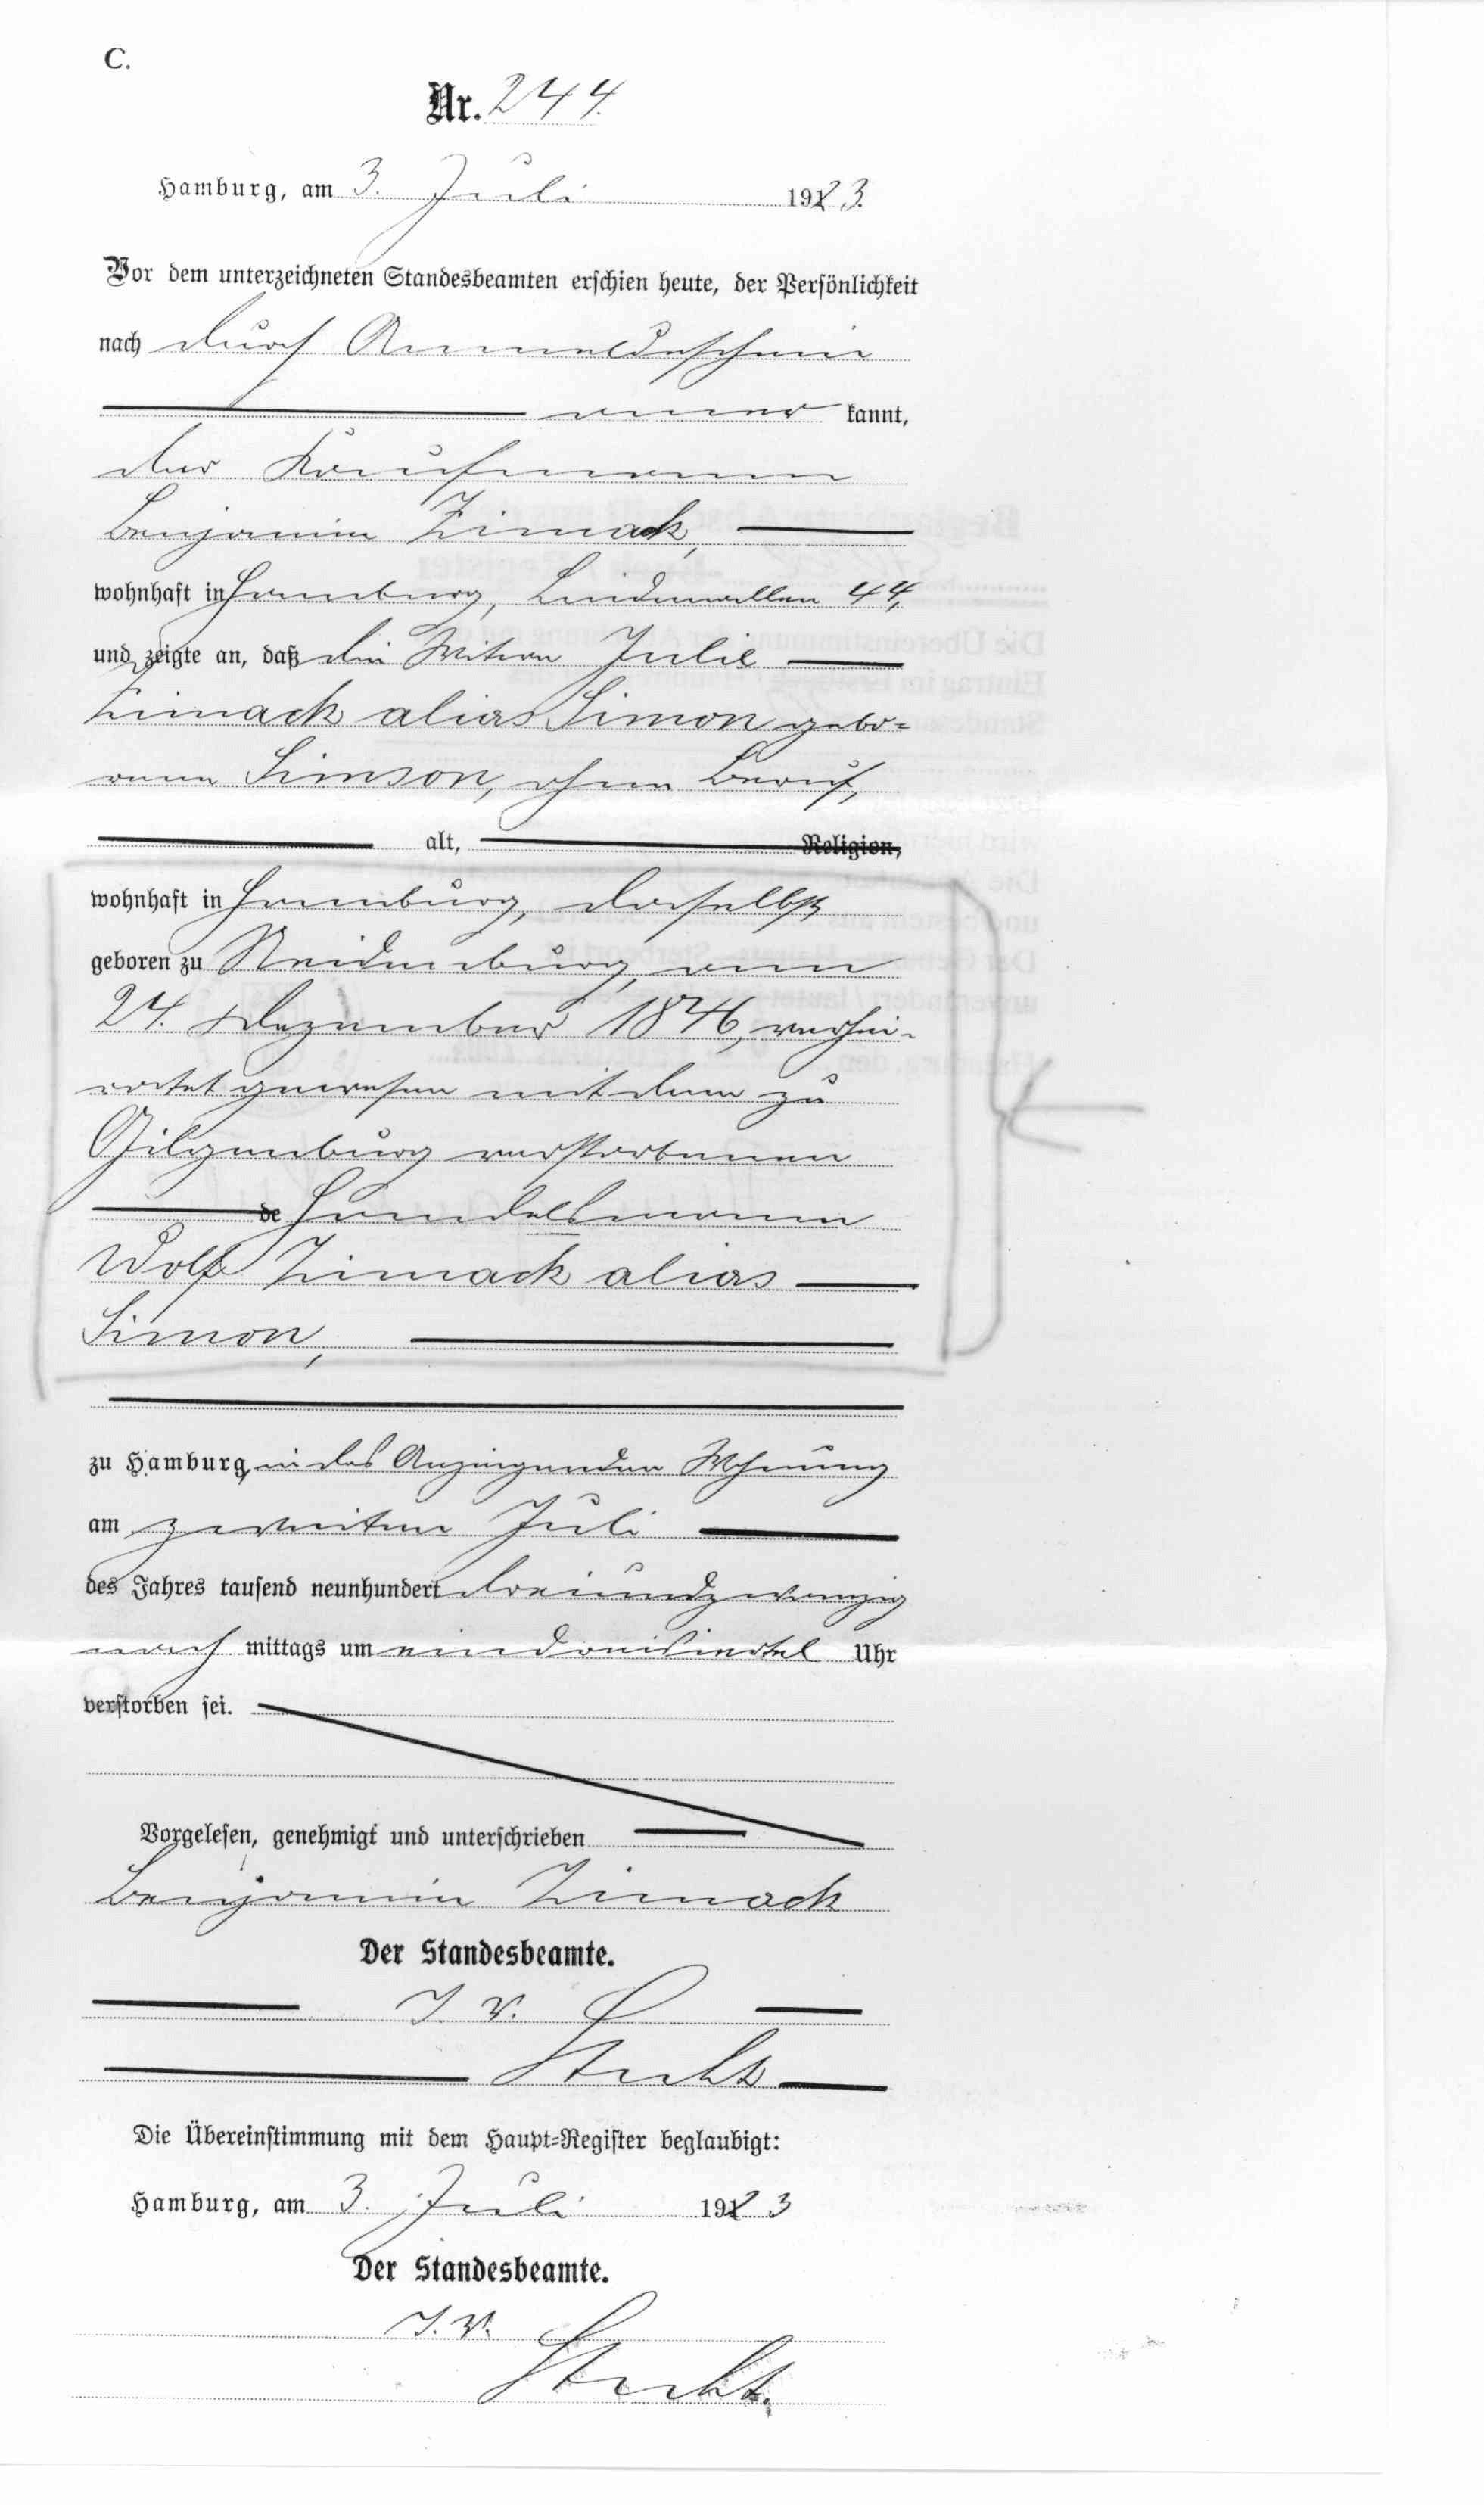 C.
Nr. 244.
Hamburg, am 3. Juli 1923.
Vor dem unterzeichneten Standesbeamten erschien heute, der Persönlichkeit
nach durch Anmeldeschein
anerkannt,
der Kaufmann
Benjamin Zimack,
wohnhaft in Hamburg, Lindenallee 44,
und zeigte an, daß die Witwe Julie
Zimack alias Simon gebo=
rene Simson, ohne Beruf,
alt, Religion,
wohnhaft in Hamburg, daselbst
geboren zu Neidenburg, am
24. Dezember 1846, verhei-
ratet gewesen mit dem zu
Gilgenburg verstorbenen
de Handelsmann
Wolf Zimack alias
Simon,
zu Hamburg, in des Anzeigenden Wohnung
am zweiten Juli
des Jahres tausend neunhundert dreiundzwanzig
nach mittags um eindreiviertel Uhr
verstorben sei.
Vorgelesen, genehmigt und unterschrieben
Benjamin Zimack
Der Standesbeamte.
I. V.
Die Übereinstimmung mit dem Haupt=Register beglaubigt:
Hamburg, am 3. Juli 1923
Der Standesbeamte.
I. V.